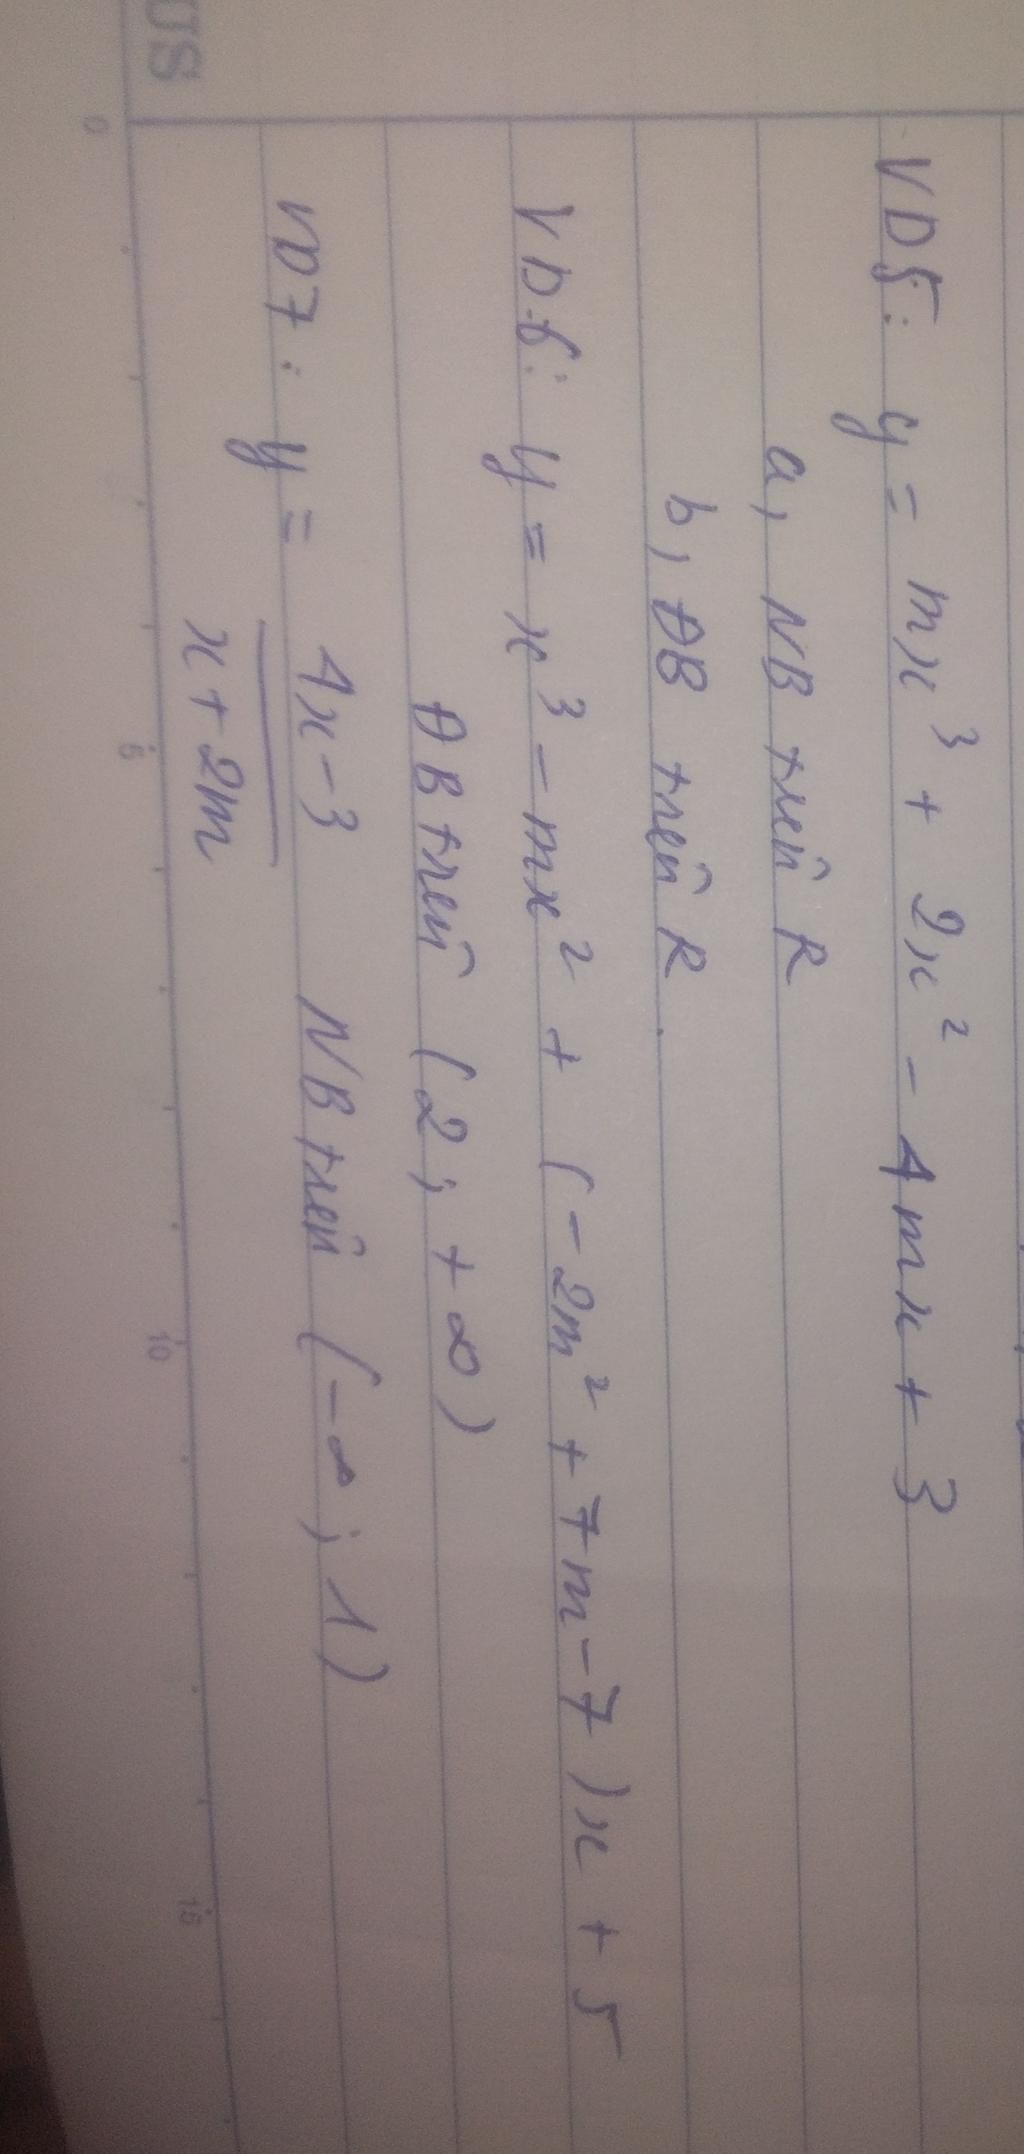 US
VD5: y = mx³ + 2x² - 4mx + 3
a, NB trên R
b, ĐB trên R.
VD6: y = x³ - mx² + (-2m² + 7m - 7)x + 5
ĐB trên (2; +∞)
VD7: y = 4x - 3 NB trên (-∞; 1)
x + 2m
0 5 10 15